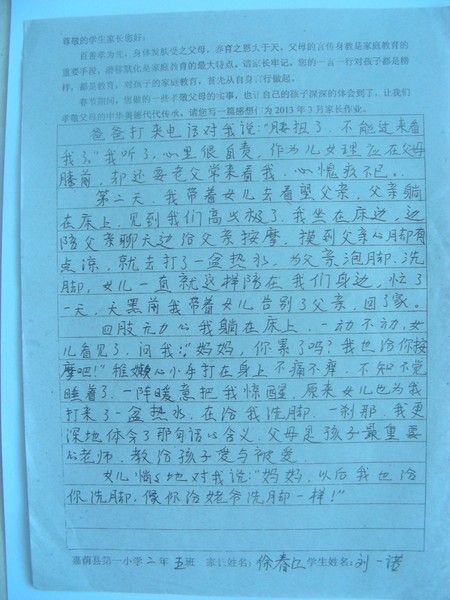 尊敬的学生家长您好：
百善孝为先，身体发肤受之父母，养育之恩大于天。父母的言传身教是家庭教育的
重要手段，潜移默化是家庭教育的最大特点。请家长牢记，您的一言一行对孩子都是榜
样，都是教育。对孩子的家庭教育，首先从自身言行做起。
春节期间，您做的一些孝敬父母的实事，也让自己的孩子深深的体会到了。让我们
孝敬父母的中华美德代代传承。请您写一篇感想作为2013年3月家长作业。
爸爸打来电话对我说："腰扭了，不能过来看
我了。"我听了，心里很自责，作为儿女理应在父母
膝前，却还要老父常来看我，心愧哀不已。
第二天，我带着女儿去看望父亲，父亲躺
在床上，见到我们高兴极了，我坐在床边，边
陪父亲聊天边给父亲按摩，摸到父亲的脚有
点凉，就去打了一盆热水，为父亲泡脚、洗
脚，女儿一直就这样陪在我们身边，忙了
一天，天黑前我带着女儿告别了父亲，回了家。
四肢无力的我躺在床上，一动不动，女
儿看见了，问我："妈妈，你累了吗？我也给你按
摩吧！"稚嫩的小手打在身上不痛不痒，不知不觉
睡着了，一阵暖意把我惊醒，原来女儿也为我
打来了一盆热水，在给我洗脚，一刹那，我更
深地体会了那句话的含义，父母是孩子最重要
的老师，教给孩子爱与被爱。
女儿悄悄地对我说："妈妈，以后我也给
你洗脚，像你给姥爷洗脚一样！"
嘉荫县第一小学二年五班 家长姓名：徐春 学生姓名：刘一诺